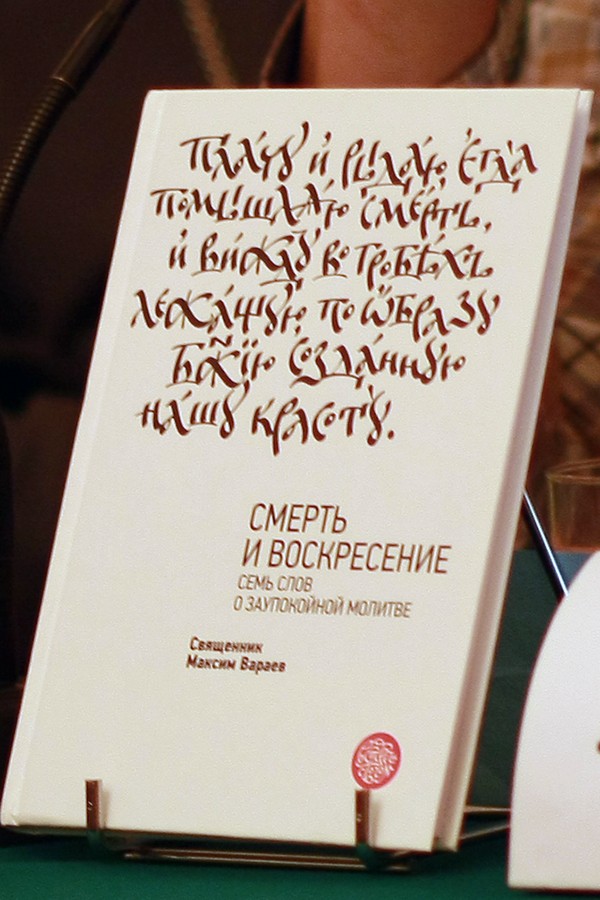 Пла́чꙋ и҆ рыда́ю, є҆гда̀
помышлѧ́ю сме́рть,
и҆ ви́ждꙋ во гробѣ́хъ
лежа́щꙋю, по ѡ҆́бразꙋ
бж҃їю созда́ннꙋю
на́шꙋ красотꙋ̀.
СМЕРТЬ
И ВОСКРЕСЕНИЕ
СЕМЬ СЛОВ
О ЗАУПОКОЙНОЙ МОЛИТВЕ
Священник
Максим Вараев